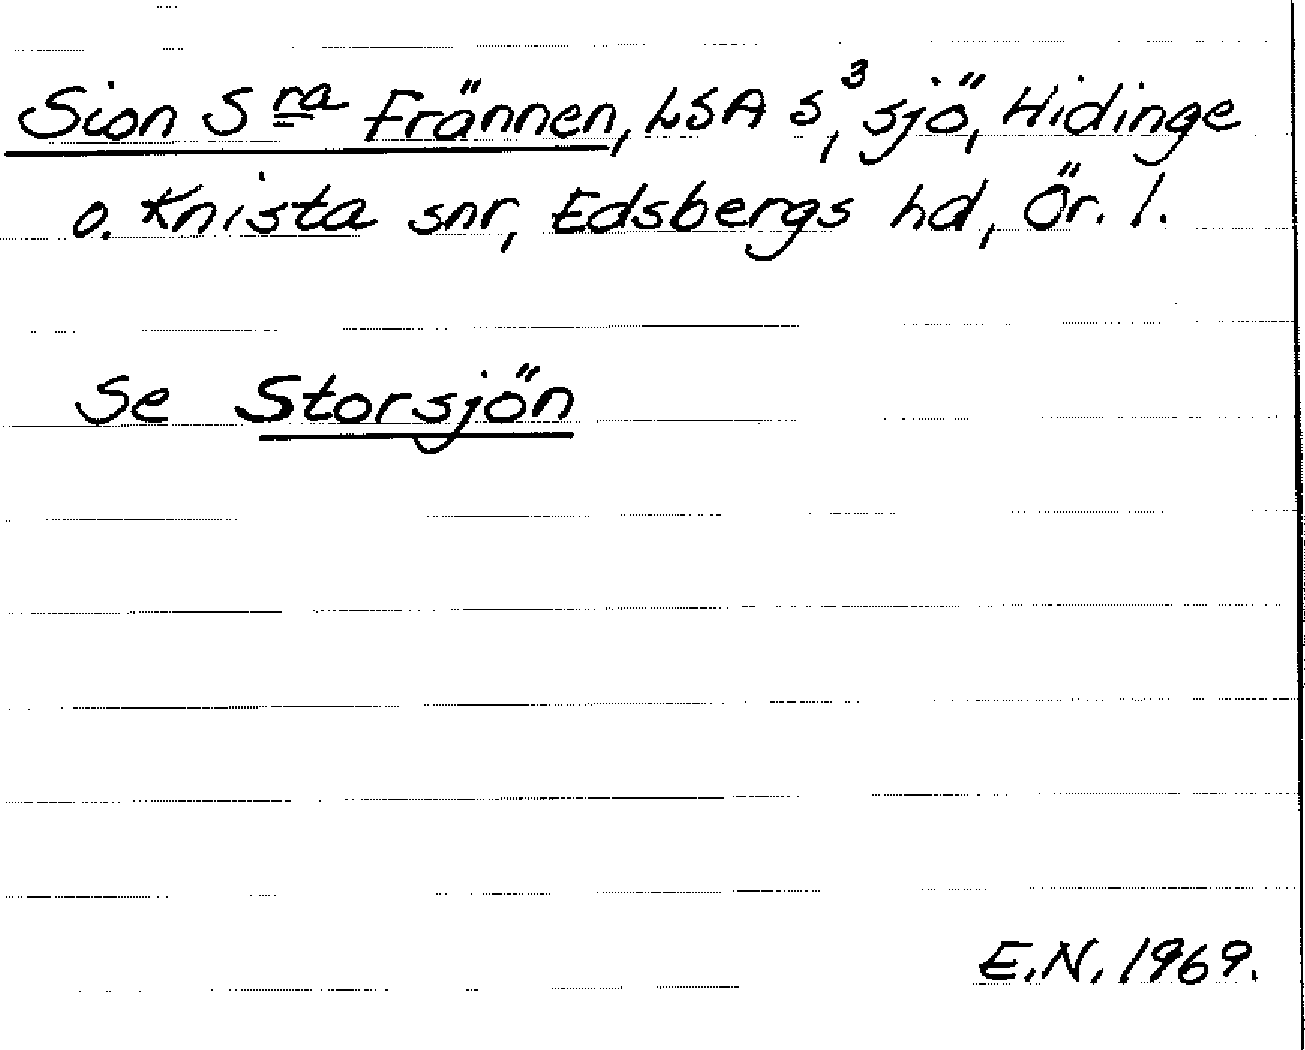 Sion S ra Frännen, LSA S³, sjö, Hidinge
o. Knista snr, Edsbergs hd, Ör. l.
Se Storsjön
E.N. 1969.